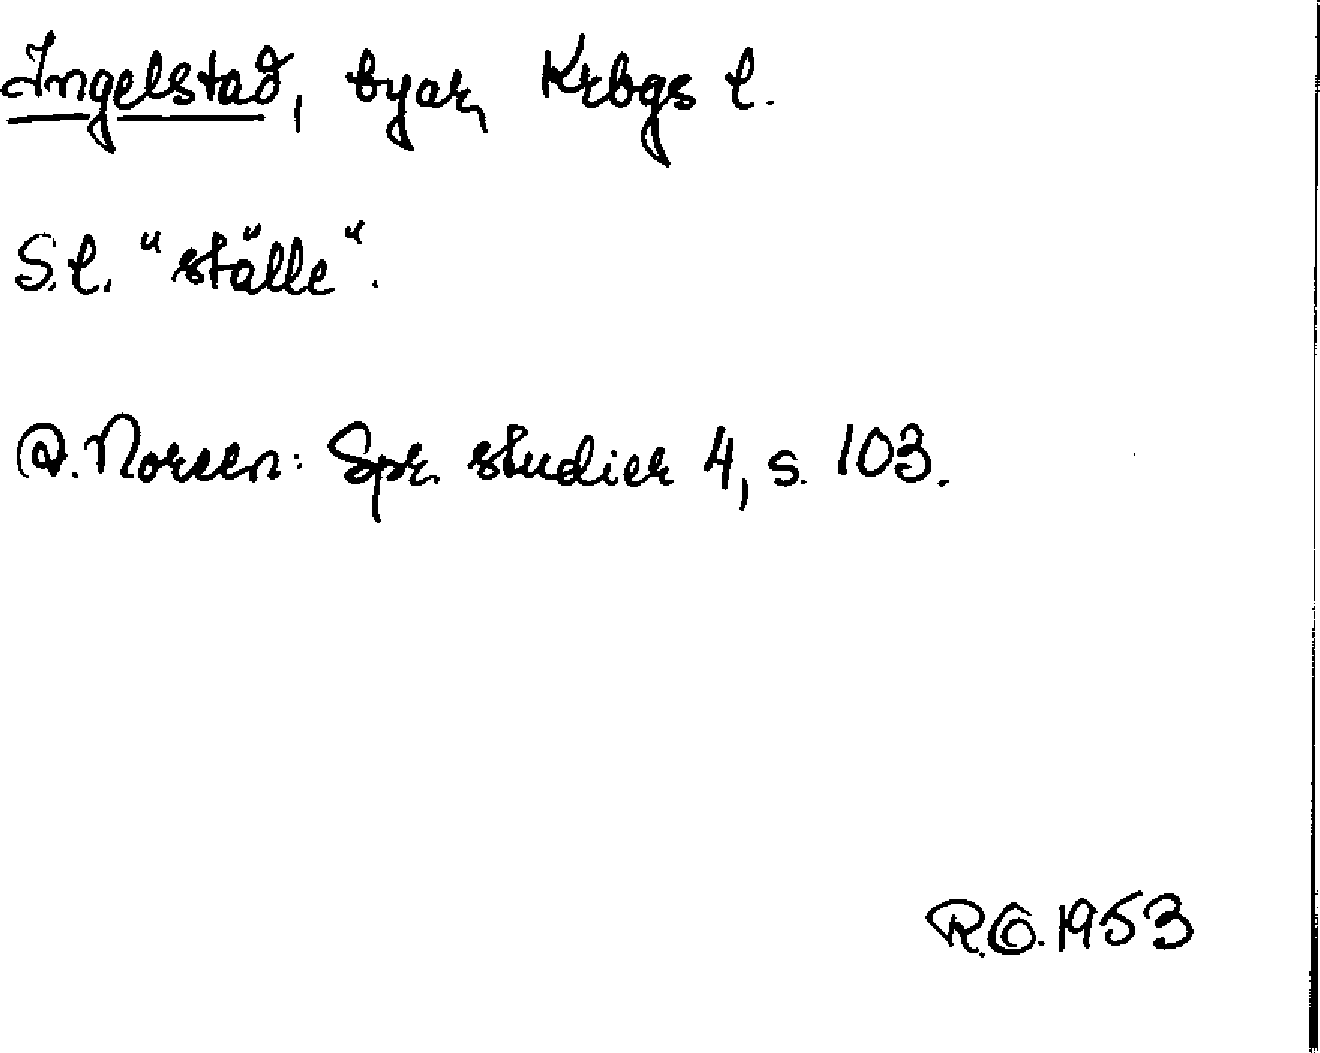 Ingelstad, byar, Krbgs l.
S.l. "ställe".
A. Noreen: Spr. studier 4, s. 103.
1953